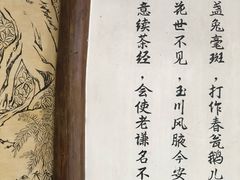 盏兔毫斑，打作春瓮鹅儿
花世不见，玉川风腋今安
意续茶经，会使老谦名不